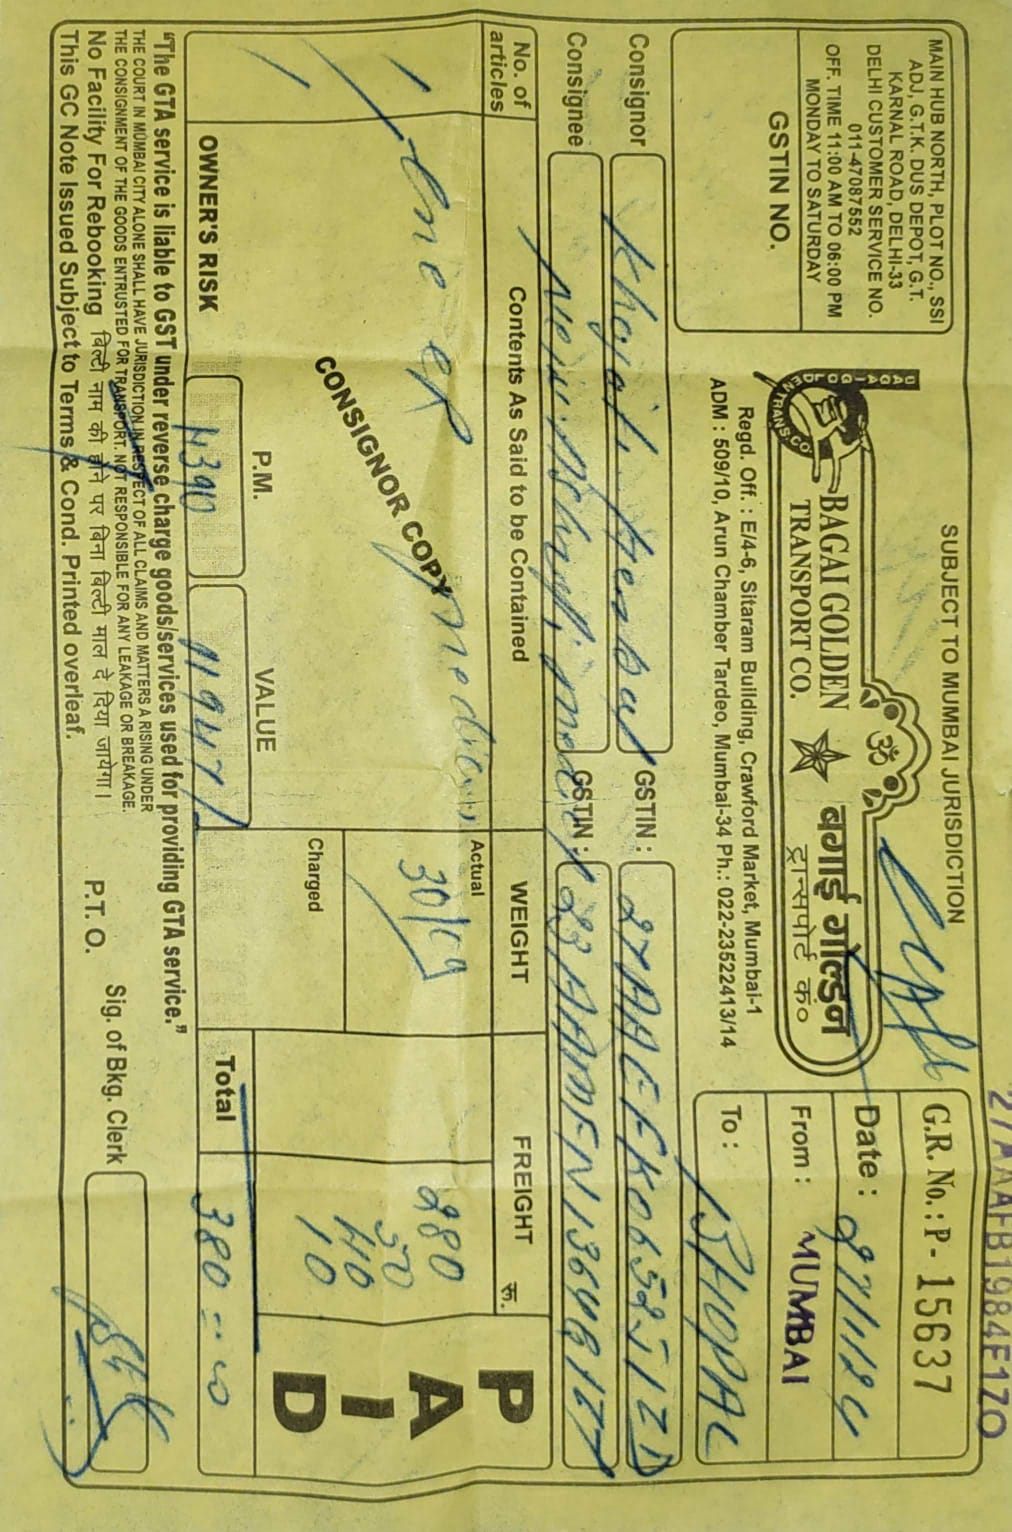 27AAAFB1984E1ZO
SUBJECT TO MUMBAI JURISDICTION
MAIN HUB NORTH, PLOT NO., SSI
ADJ, G.T.K. DUS DEPOT, G.T.
KARNAL ROAD, DELHI-33
DELHI CUSTOMER SERVICE NO.
011-47087552
OFF. TIME 11:00 AM TO 06:00 PM
MONDAY TO SATURDAY
GSTIN NO.
BAGAI GOLDEN
TRANSPORT CO.
ॐ
बगाई गोल्डन
ट्रान्सपोर्ट कं०
Regd. Off. : E/4-6, Sitaram Building, Crawford Market, Mumbai-1
ADM : 509/10, Arun Chamber Tardeo, Mumbai-34 Ph.: 022-23522413/14
G.R. No.: P- 15637
Date : 27/1/24
From : MUMBAI
To : BHOPAL
Consignor
GSTIN : 27AAEFK0652J1ZD
Consignee
GSTIN : 23AAMFN1364G1ZT
No. of articles
Contents As Said to be Contained
WEIGHT
FREIGHT रू.
PAID
Actual
30/kg
Charged
280
50
40
10
Total
380
CONSIGNOR COPY
OWNER'S RISK
P.M.
4390
VALUE
11947/
"The GTA service is liable to GST under reverse charge goods/services used for providing GTA service."
THE COURT IN MUMBAI CITY ALONE SHALL HAVE JURISDICTION IN RESPECT OF ALL CLAIMS AND MATTERS A RISING UNDER
THE CONSIGNMENT OF THE GOODS ENTRUSTED FOR TRANSPORT. NOT RESPONSIBLE FOR ANY LEAKAGE OR BREAKAGE.
No Facility For Rebooking बिल्टी नाम की होने पर बिना बिल्टी माल दे दिया जायेगा।
This GC Note Issued Subject to Terms & Cond. Printed overleaf.
P.T.O.
Sig. of Bkg. Clerk